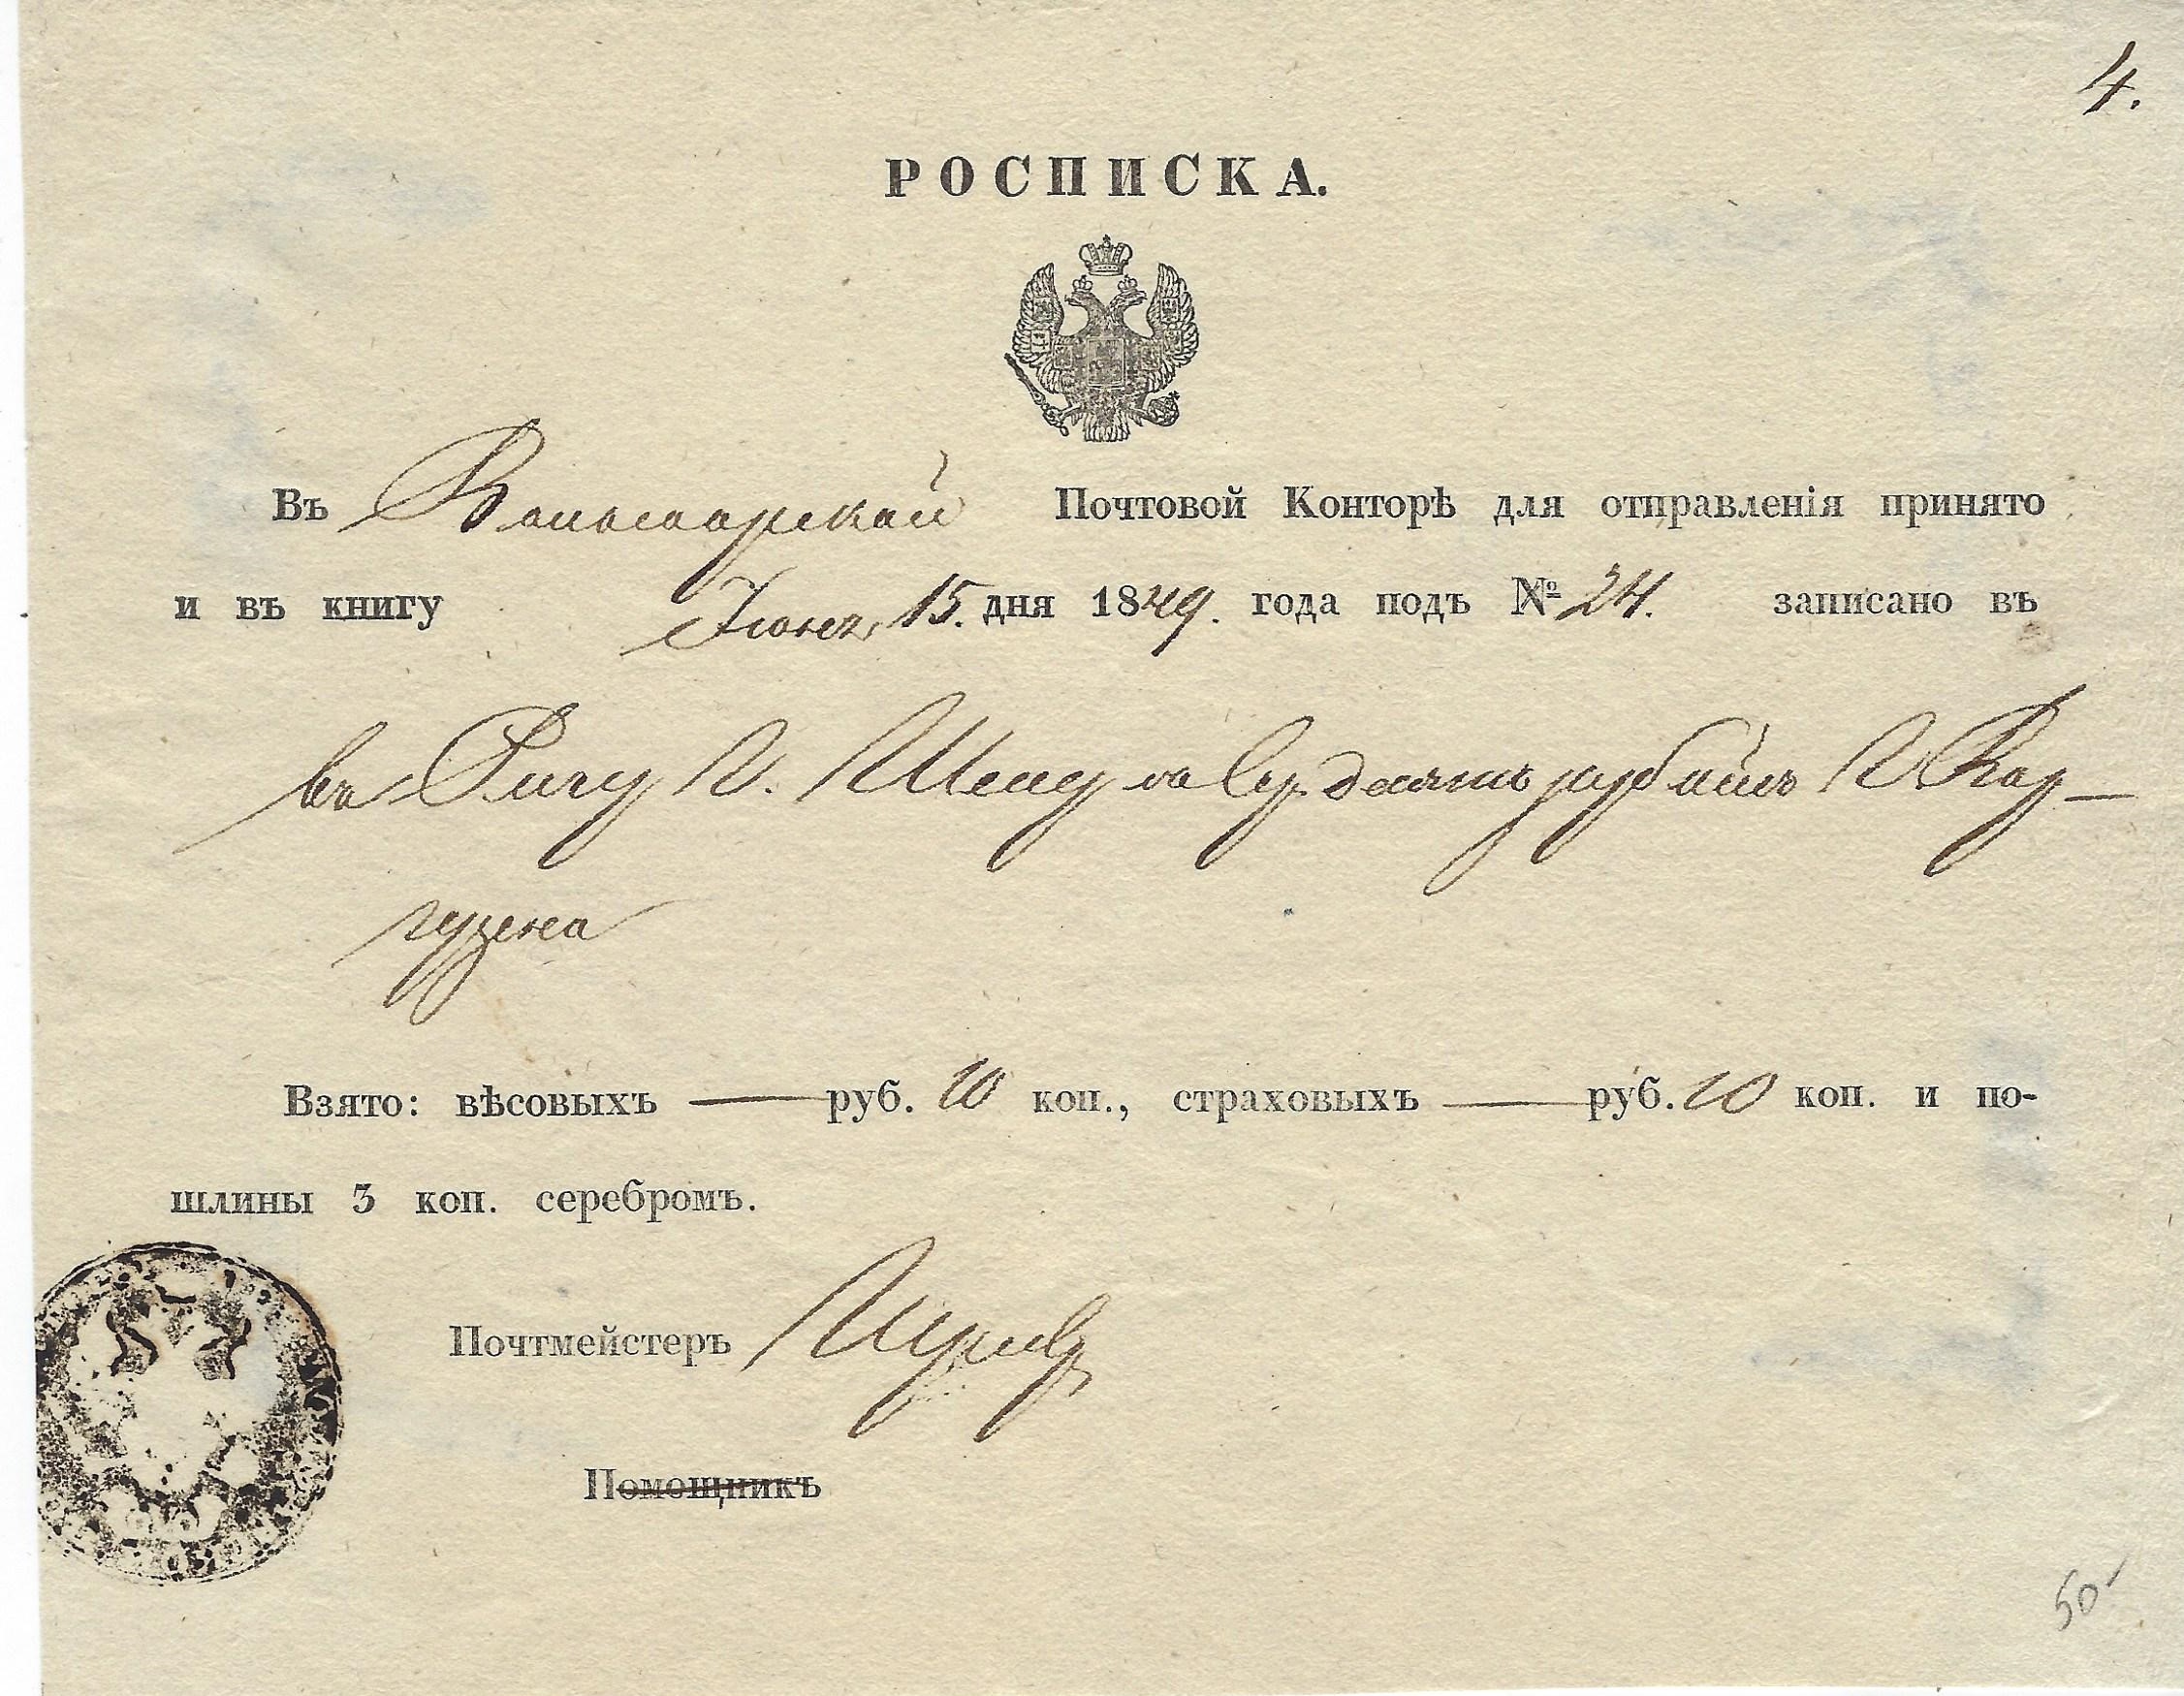 4.
РОСПИСКА.
Въ Вольмарской Почтовой Конторѣ для отправленія принято
и въ книгу Іюня 15. дня 1849. года подъ № 24. записано въ
въ Ригу Г. десять рублей Г Кар-
Взято: вѣсовыхъ — руб. 10 коп., страховыхъ — руб. 10 коп. и по-
шлины 3 коп. серебромъ.
Почтмейстеръ
Помощникъ
50